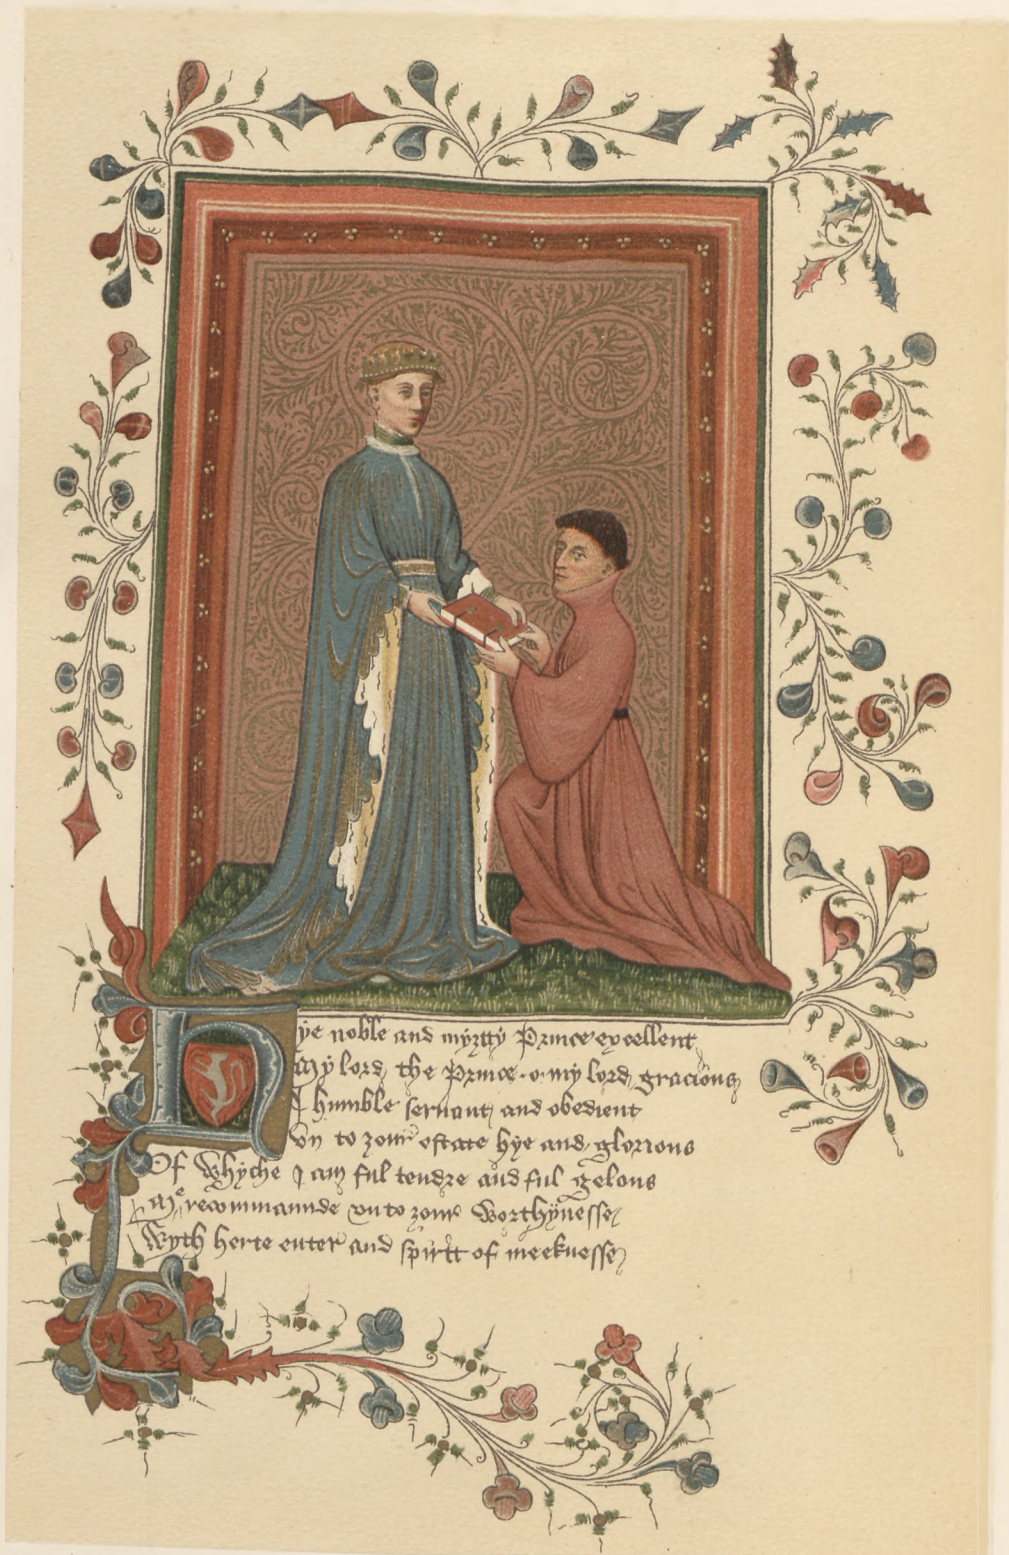 Hye noble and myȝtty Prince excellent
My lord the Prince o my lord gracious
I humble seruant and obedient
Vn to ȝour estate hye and glorious
Of whyche I am ful tendre and ful gelous
Me recommaunde vnto ȝour worthynesse
Wyth herte enter and spirit of meeknesse